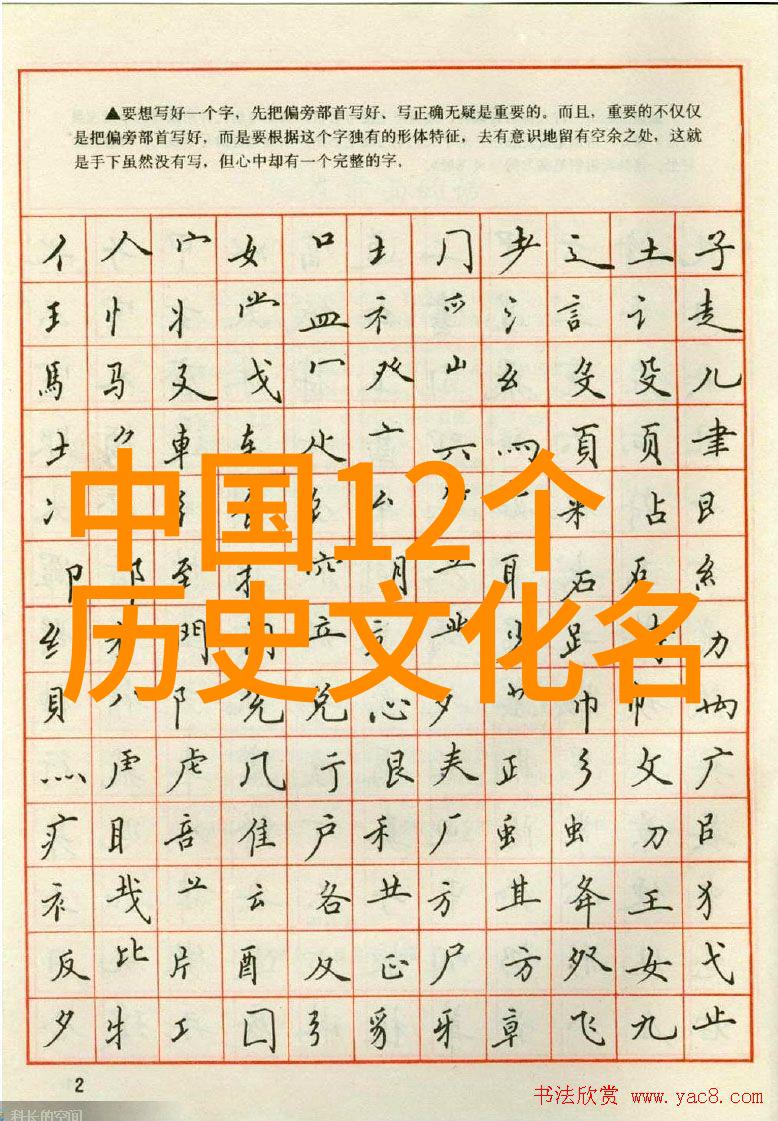 ▲要想写好一个字，先把偏旁部首写好、写正确无疑是重要的。而且，重要的不仅仅
是把偏旁部首写好，而是要根据这个字独有的形体特征，去有意识地留有空余之处，这就
是手下虽然没有写，但心中却有一个完整的字。
亻 人 宀 女 口 土 门 耂 辶 土 子
王 忄 丬 龸 皿 礻 爫 氵 言 讠 走
馬 马 廴 戈 冖 癶 山 幺 夂 殳 儿
士 車 车 亠 六 罒 頁 页 聿
冫 米 占 日
卩 阝 至 扌 穴 月 耳 石 石 糹
纟 門 立 足 力
貝 八 阝 免 兑 心 夕 巾
灬 虍 虎 几 亍 艮 夫 正 彡 文 广
疒 目 音 隹 户 禾 厂 虫 虫 刀 吕
衤 云 各 方 其 夅 王 犭
反 比 片 酉 及 正 尸 方 女 弋
夕 牜 工 囗 弓 豸 牙 章 飞 九 止
中国12个
历史文化名
2
书法欣赏 www.yac8.com
科长的空间